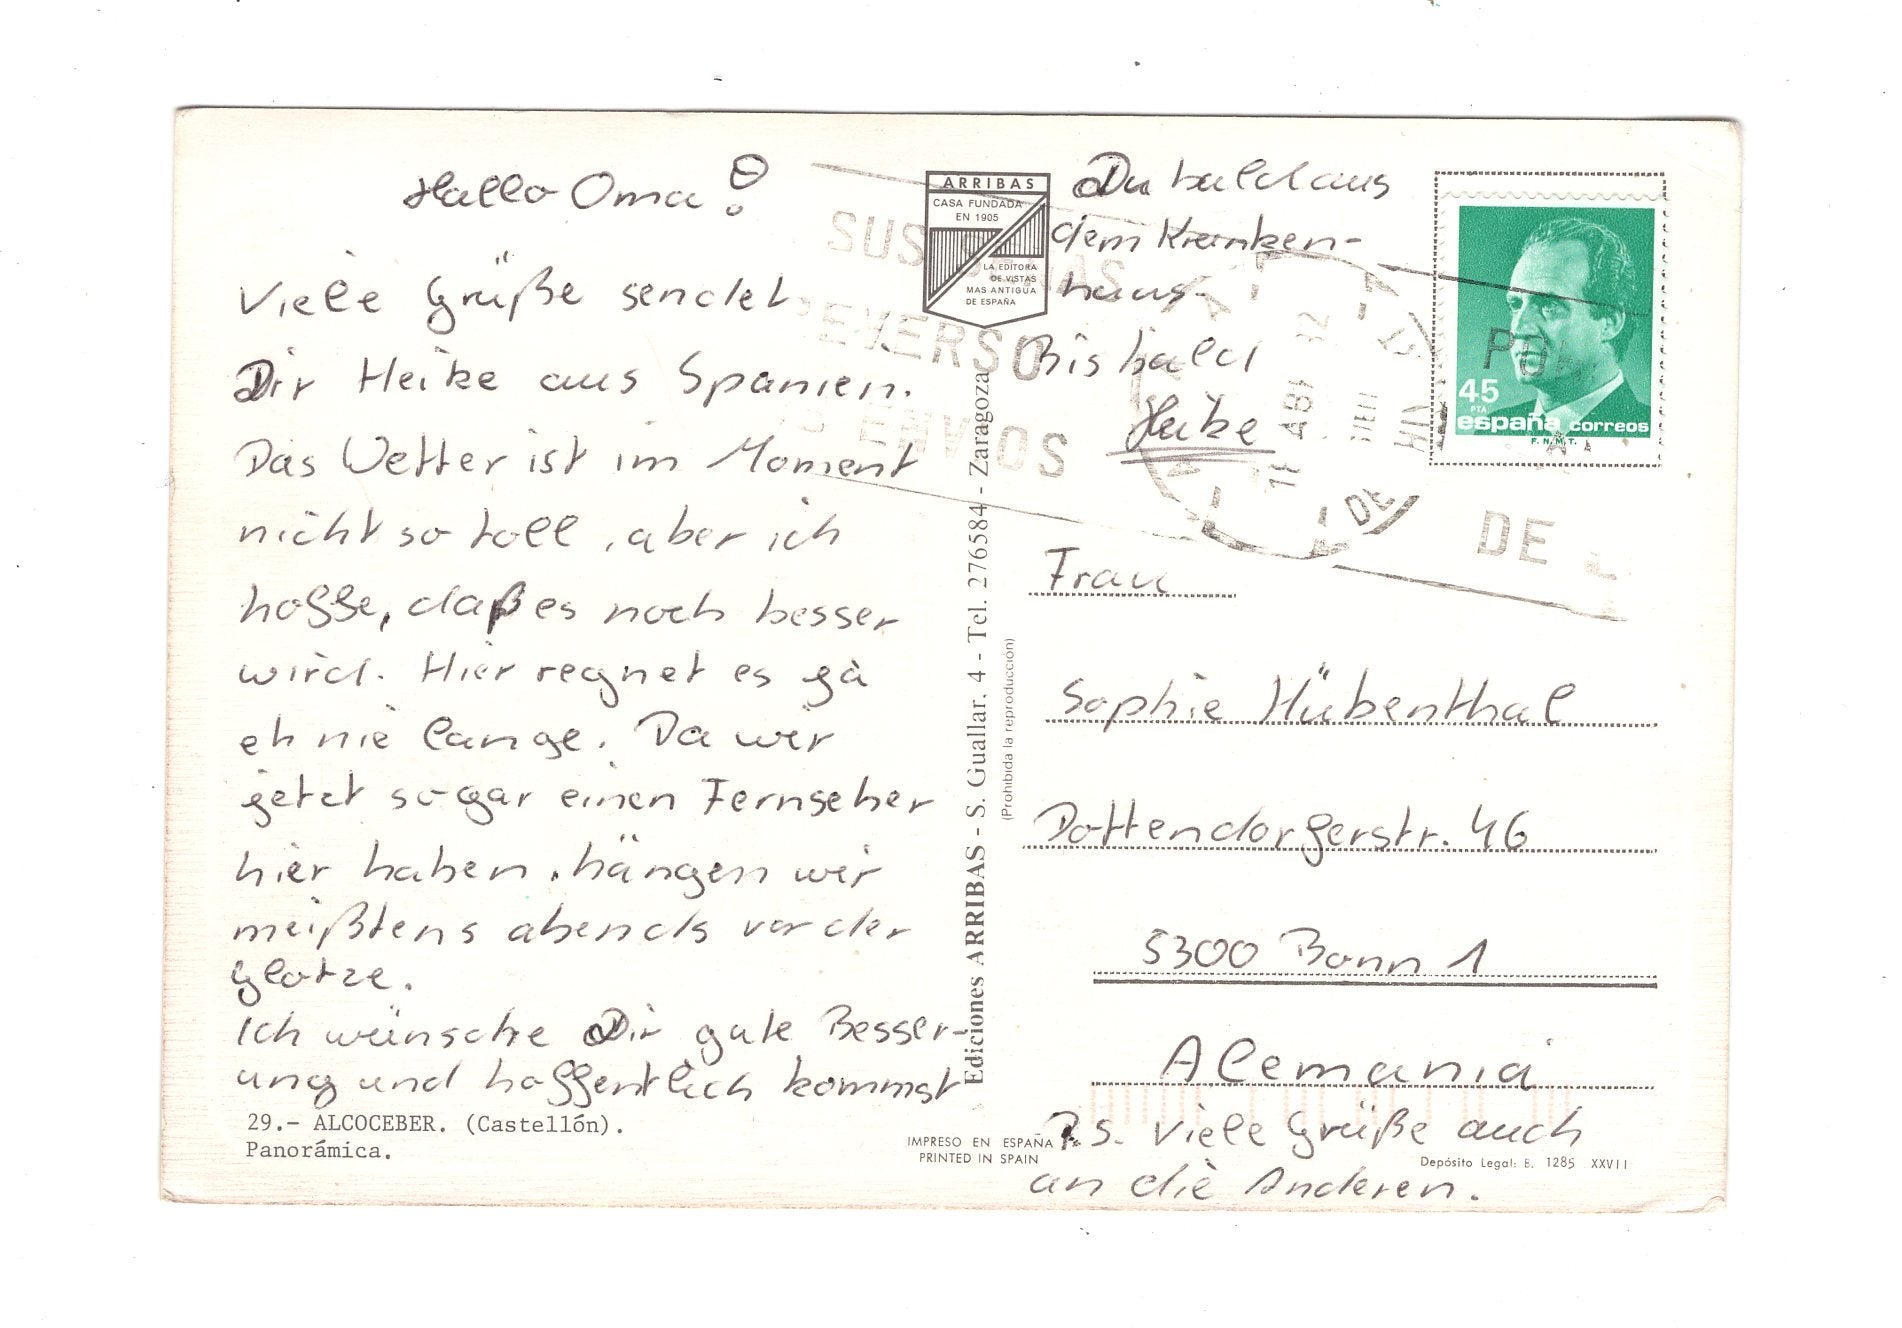 Hallo Oma!
Viele Grüße sendet
Dir Heike aus Spanien.
Das Wetter ist im Moment
nicht so toll, aber ich
hoffe, daß es noch besser
wird. Hier regnet es ja
eh nie lange. Da wir
jetzt sogar einen Fernseher
hier haben, hängen wir
meißtens abends vor der
Glotze.
Ich wünsche Dir gute Besser-
ung und hoffentlich kommst
Du bald aus
dem Kranken-
haus.
Bis bald
Heike
29.- ALCOCEBER. (Castellón).
Panorámica.
ARRIBAS
CASA FUNDADA
EN 1905
LA EDITORA
DE VISTAS
MAS ANTIGUA
DE ESPAÑA
Ediciones ARRIBAS - S. Guallar. 4 - Tel. 276584 - Zaragoza
(Prohibida la reproducción)
IMPRESO EN ESPAÑA
PRINTED IN SPAIN
SUS
REVERSO
ENVIOS
DE
DE
45
PTA
españa correos
F.N.M.T.
Frau
Sophie Hübenthal
Dottendorferstr. 46
5300 Bonn 1
Alemania
P.S. Viele Grüße auch
an die Anderen.
Depósito Legal: B. 1285 XXVII